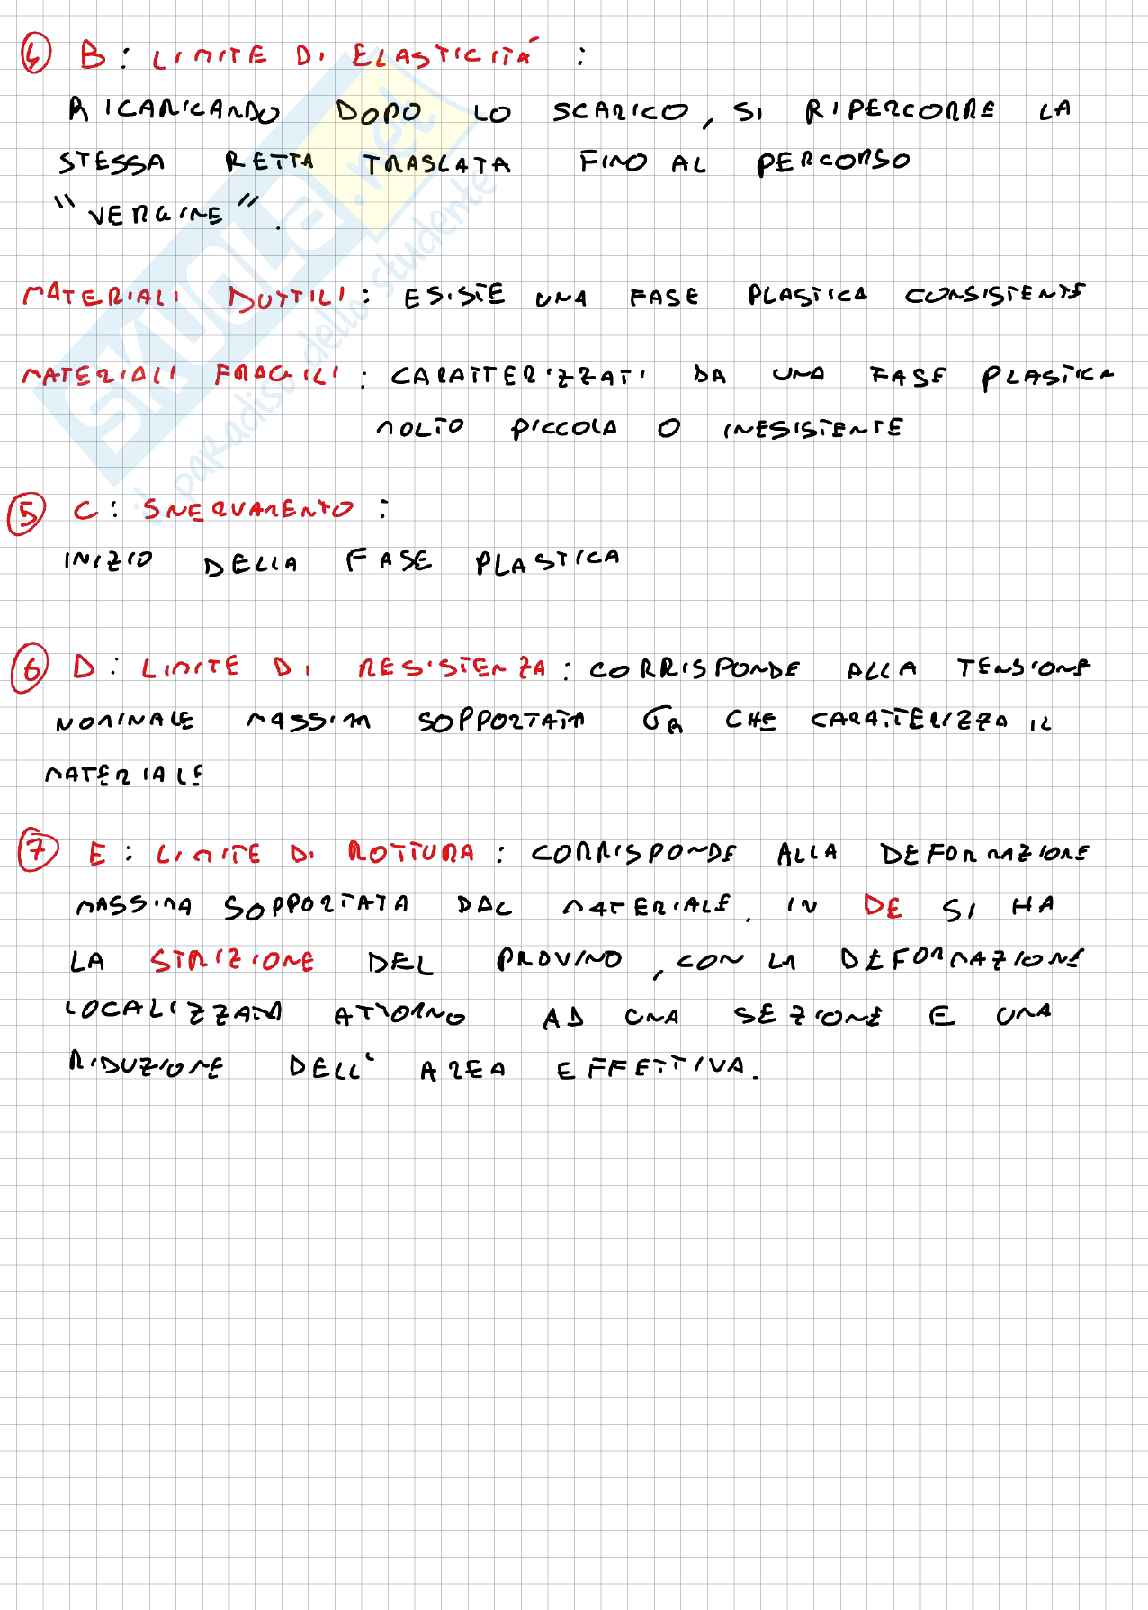 ④ B: LIMITE DI ELASTICITÁ :
RICARICANDO DOPO LO SCARICO, SI RIPERCORRE LA
STESSA RETTA TRASLATA FINO AL PERCORSO
"VERGINE".
MATERIALI DUTTILI: ESISTE UNA FASE PLASTICA CONSISTENTE
MATERIALI FRAGILI: CARATTERIZZATI DA UNA FASE PLASTICA
MOLTO PICCOLA O INESISTENTE
⑤ C: SNERVAMENTO:
INIZIO DELLA FASE PLASTICA
⑥ D: LIMITE DI RESISTENZA: CORRISPONDE ALLA TENSIONE
NOMINALE MASSIMA SOPPORTATA σR CHE CARATTERIZZA IL
MATERIALE
⑦ E: LIMITE DI ROTTURA: CORRISPONDE ALLA DEFORMAZIONE
MASSIMA SOPPORTATA DAL MATERIALE. IN DE SI HA
LA STRIZIONE DEL PROVINO, CON LA DEFORMAZIONE
LOCALIZZATA ATTORNO AD UNA SEZIONE E UNA
RIDUZIONE DELL' AREA EFFETTIVA.
SKUOLA.net
il paradiso dello studente